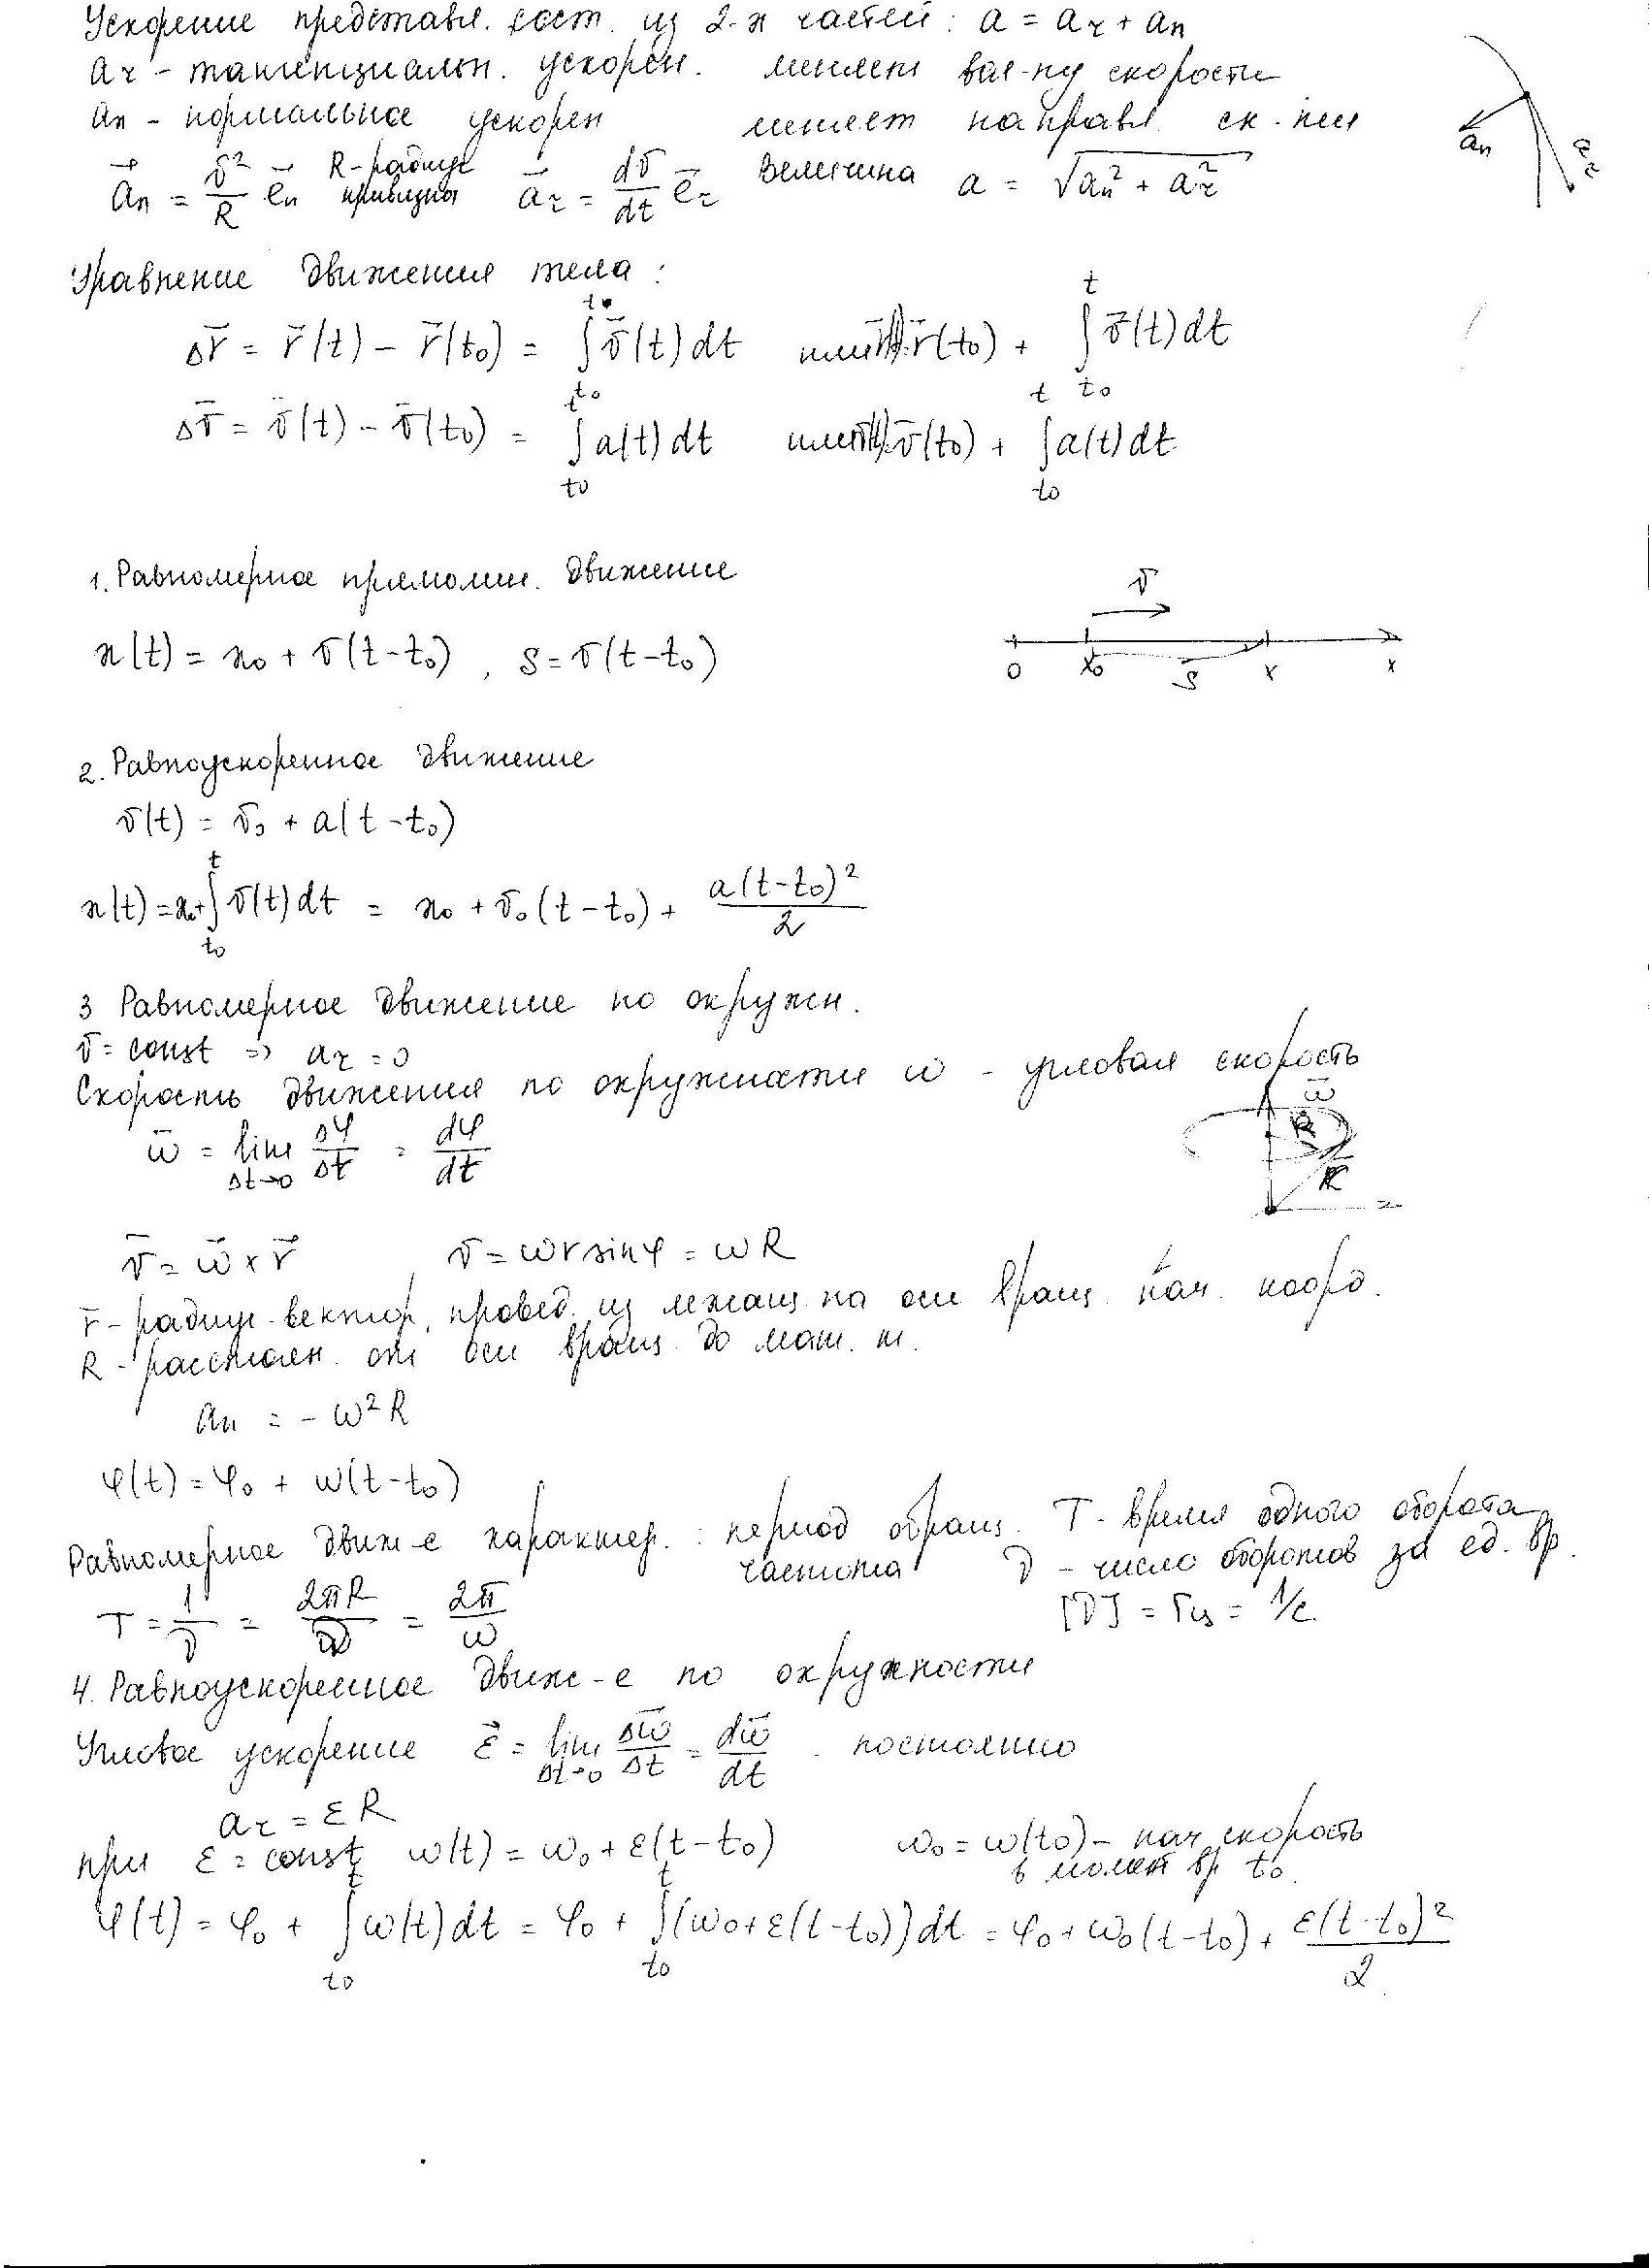 Ускорение представл. сост. из 2-х частей: a = aτ + an
aτ - тангенциальн. ускорен. меняет вел-ну скорости
an - нормальное ускорен меняет направл. ск-ти
an
aτ
a⃗n = υ²/R e⃗n R-радиус кривизны a⃗τ = dυ/dt e⃗τ Величина a = √(an² + aτ²)
Уравнение движения тела:
Δr̄ = r̄(t) - r̄(t₀) = ∫ₜ₀ᵗ ῡ(t)dt или r̄(t₀) + ∫ₜ₀ᵗ ῡ(t)dt
Δῡ = ῡ(t) - ῡ(t₀) = ∫ₜ₀ᵗ a(t)dt или ῡ(t₀) + ∫ₜ₀ᵗ a(t)dt
1. Равномерное прямолин. движение
υ
x(t) = x₀ + υ(t-t₀), S = υ(t-t₀)
0 x₀ S x x
2. Равноускоренное движение
υ(t) = υ₀ + a(t-t₀)
x(t) = x₀+∫ₜ₀ᵗ υ(t)dt = x₀ + υ₀(t-t₀) + a(t-t₀)²/2
3 Равномерное движение по окружн.
υ = const => aτ = 0
Скорость движения по окружности ω - угловая скорость
ω̄ = lim Δt→0 Δφ/Δt = dφ/dt
ω̄
R
ῡ = ω̄ × r̄ υ = ωr sinφ = ωR
r̄ - радиус-вектор, провед. из лежащ. на оси вращ. нач. коорд.
R - расстоян. от оси вращ. до мат. т.
an = -ω²R
φ(t) = φ₀ + ω(t-t₀)
Равномерное движ-е характер.: период обращ. T - время одного оборота
частота ν - число оборотов за ед. вр.
T = 1/ν = 2πR/υ = 2π/ω [ν] = Гц = 1/с
4. Равноускоренное движ-е по окружности
Угловое ускорение ε⃗ = lim Δt→0 Δω̄/Δt = dω̄/dt - постоянно
aτ = εR
при ε = const ω(t) = ω₀ + ε(t-t₀) ω₀ = ω(t₀) - нач. скорость
в момент вр t₀
φ(t) = φ₀ + ∫ₜ₀ᵗ ω(t)dt = φ₀ + ∫ₜ₀ᵗ (ω₀+ε(t-t₀))dt = φ₀+ω₀(t-t₀) + ε(t-t₀)²/2